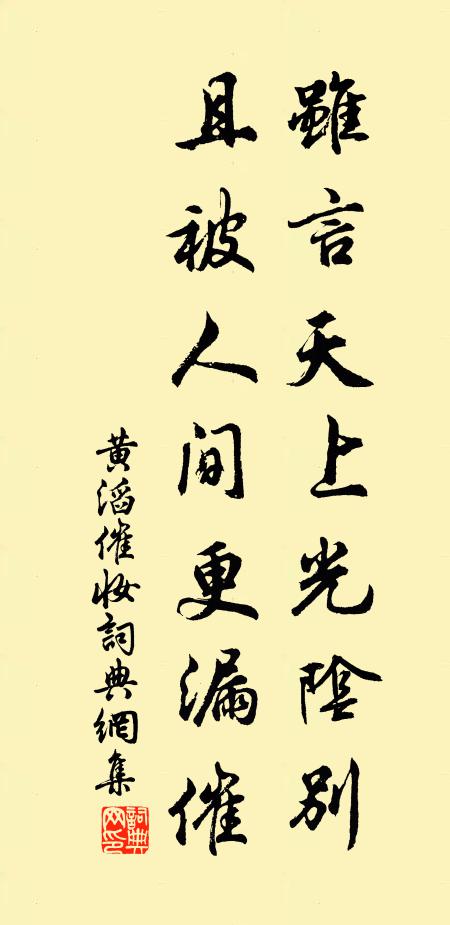 雖言天上光陰別
且被人間更漏催
黃滔催妝詞典網集
詞典网印